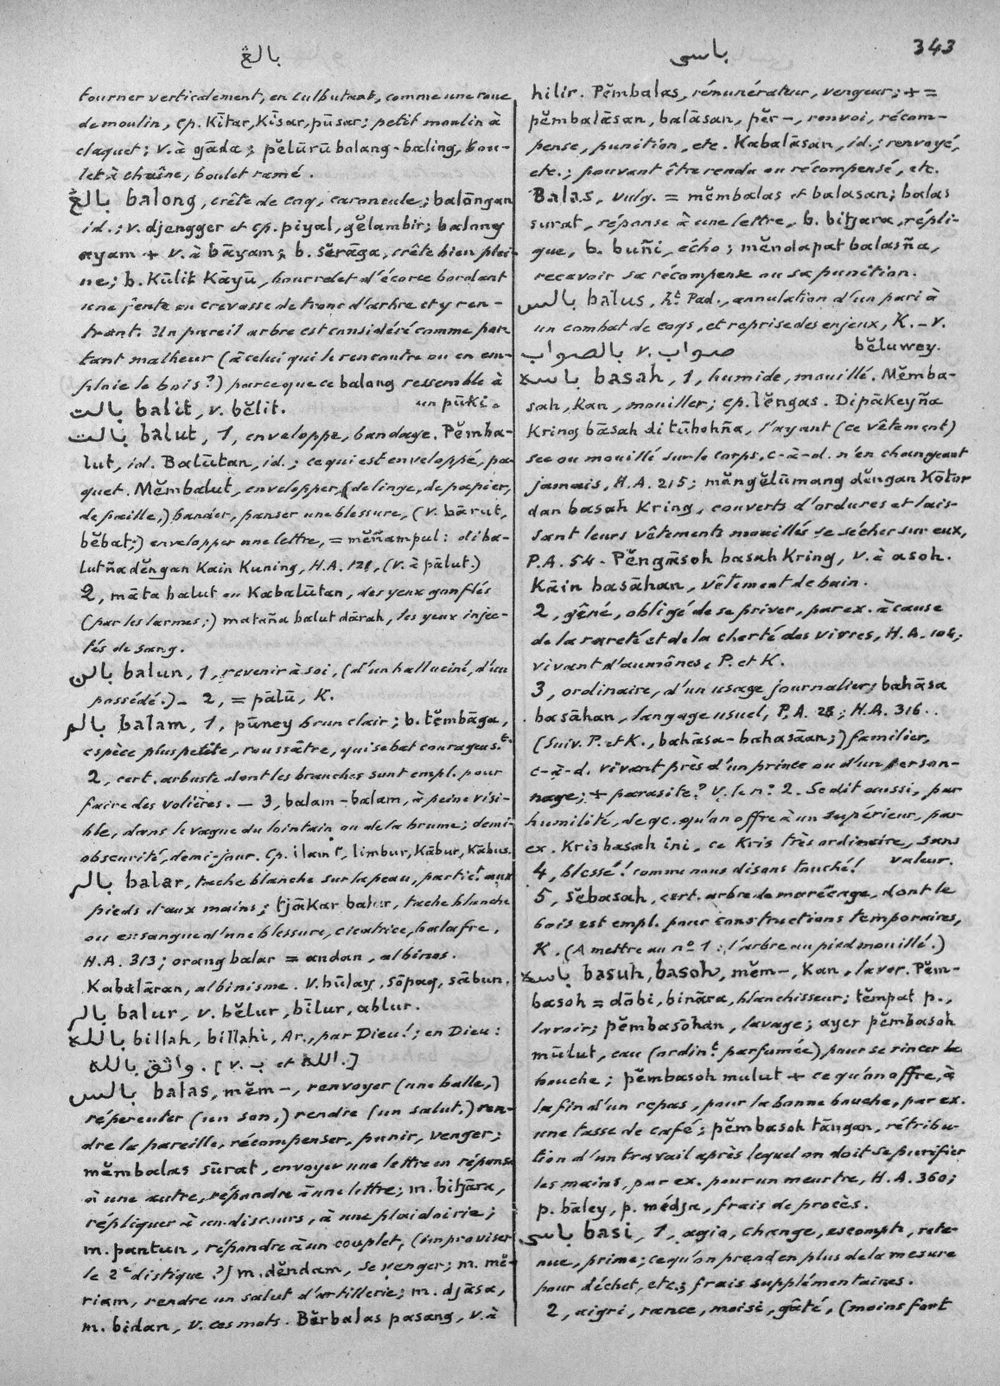 بالڠ
باسى
343
tourner verticalement, en culbutant, comme une roue
de moulin, cp. Kītar, Kīsar, pūsar; petit moulin à
claquet; v. à gāda; pĕlūrū balang-baling, bou-
let à chaîne, boulet ramé.
بالڠ balong, crête de coq, caroncule; balōngan
id.; v. djengger et cp. piyal, gĕlambir; balong
ayam + v. à bāyam; b. sĕrāga, crête bien plei-
ne; b. Kūlit Kāyū, bourrelet d'écorce bordant
une fente ou crevasse de tronc d'arbre et y ren-
trant. Un pareil arbre est considéré comme por-
tant malheur (à celui qui le rencontre ou en em-
ploie le bois?) parce que ce balong ressemble à
un pūki.
بالت balit, v. bĕlit.
بالت bālut, 1, enveloppe, bandage. Pĕmba-
lut, id. Balūtan, id.; ce qui est enveloppé, pa-
quet. Mĕmbalut, envelopper, (de linge, de papier,
de paille,) bander, panser une blessure, (v. bārut,
bĕbat;) envelopper une lettre, = mĕñampul: di ba-
lutña dĕngan Kain Kuning, H.A. 121, (v. à pālut.)
2, māta balut ou Kabalūtan, des yeux gonflés
(par les larmes;) mataña balut dārah, les yeux injec-
tés de sang.
بالن balun, 1, revenir à soi, (d'un halluciné, d'un
possédé.) – 2, = pālū, K.
بالم balam, 1, pūney brun clair; b. tĕmbāga,
espèce plus petite, roussâtre, qui se bat courageus.t
2, cert. arbuste dont les branches sont empl. pour
faire des volières. — 3, balam-balam, à peine visi-
ble, dans le vague du lointain ou de la brume; demi-
obscurité, demi-jour. Cp. ilamt, limbur, Kābur, Kābus.
بالر balar, tache blanche sur la peau, partict. aux
pieds et aux mains; tjākar balar, tache blanche
ou exsangue d'une blessure, cicatrice, balafre,
H.A. 313; orang balar = andan, albinos.
Kabalāran, albinisme. v. būlay, sōpag, sābun.
بالر balur, v. bĕlur, bīlur, ablur.
بالله billah, billāhi, Ar., par Dieu!; en Dieu:
واثق بالله. [v. ب et الله.]
بالس balas, mĕm-, renvoyer (une balle,)
répercuter (un son,) rendre (un salut,) ren-
dre la pareille, récompenser, punir, venger;
mĕmbalas sūrat, envoyer une lettre en réponse
à une autre, répondre à une lettre; m. bitjāra,
répliquer à un discours, à une plaidoirie;
m. pantun, répondre à un couplet, (improviser
le 2e distique?) m. dĕndam, se venger; m. mĕ-
riam, rendre un salut d'artillerie; m. djāsa,
m. bidan, v. ces mots. Bĕrbalas pasang, v. à
hilir. Pĕmbalas, rémunérateur, vengeur; + =
pĕmbalāsan, balāsan, pĕr-, renvoi, récom-
pense, punition, etc. Kabalāsan, id.; renvoyé,
etc.; pouvant être rendu ou récompensé, etc.
Balas, vulg. = mĕmbalas et balasan; balas
surat, réponse à une lettre, b. bitjara, répli-
que, b. buñi, écho; mĕndapat balasña,
recevoir sa récompense ou sa punition.
بالس balus, Ht Pad., annulation d'un pari à
un combat de coqs, et reprise des enjeux, K. – v.
bĕluwey.
بالصواب v. صواب
باسه basah, 1, humide, mouillé. Mĕmba-
sah, kan, mouiller; cp. lĕngas. Dipākeyña
Kring bāsah di tūbohña, l'ayant (ce vêtement)
sec ou mouillé sur le corps, c-à-d. n'en changeant
jamais, H.A. 215; mĕngĕlūmang dĕngan Kōtor
dan basah Kring, couverts d'ordures et lais-
sant leurs vêtements mouillés se sécher sur eux,
P.A. 54. Pĕngāsoh basah Kring, v. à asoh.
Kāin basāhan, vêtement de bain.
2, gêné, obligé de se priver, par ex. à cause
de la rareté et de la cherté des vivres, H.A. 106;
vivant d'aumônes, P. et K.
3, ordinaire, d'un usage journalier; bahāsa
basāhan, langage usuel, P.A. 28; H.A. 316.
(Suiv. P. et K., bahāsa-bahasāan;) familier,
c-à-d. vivant près d'un prince ou d'un person-
nage; + parasite? v. le no 2. Se dit aussi, par
humilité, de qc. qu'on offre à un supérieur, par
ex. Kris basah ini, ce Kris très ordinaire, sans
valeur.
4, blessé! comme nous disons touché!
5, Sĕbasah, cert. arbre de marécage, dont le
bois est empl. pour constructions temporaires,
K. (A mettre au no 1: l'arbre au pied mouillé.)
باسه basuh, basoh, mĕm-, Kan, laver. Pĕm-
basoh = dōbi, bināra, blanchisseur; tĕmpat p.,
lavoir; pĕmbasōhan, lavage; ayer pĕmbasoh
mūlut, eau (ordint parfumée) pour se rincer la
bouche; pĕmbasoh mulut + ce qu'on offre, à
la fin d'un repas, pour la bonne bouche, par ex.
une tasse de café; pĕmbasoh tāngan, rétribu-
tion d'un travail après lequel on doit se purifier
les mains, par ex. pour un meurtre, H.A. 360;
p. bāley, p. médja, frais de procès.
باسى basi, 1, agio, change, escompte, rete-
nue, prime; ce qu'on prend en plus de la mesure
pour déchet, etc.; frais supplémentaires.
2, aigri, rance, moisi, gâté, (moins fort